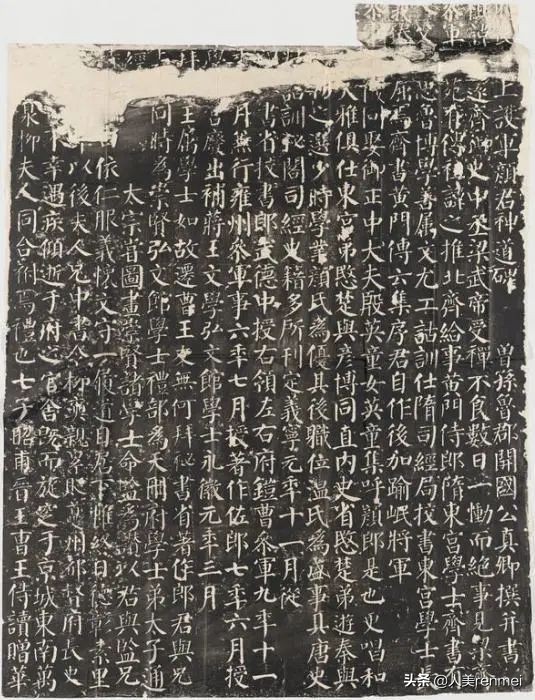 上護軍顏君神道碑 曾孫魯郡開國公真卿撰并書
逐齊御史中丞梁武帝受禪不食數日一慟而絕事見梁齊
在傳祖諱之推北齊給事黃門侍郎隋東宮學士齊書
思魯博學善屬文尤工詁訓仕隋司經局校書東宮學士長
屈焉齊書黃門傳云集序君自作後加踰岷將軍
娶御正中大夫殷英童女英童集呼顏郎是也更唱和
人雅俱仕東宮弟愍楚與彥博同直内史省愍楚弟遊秦與
之選少時學業顏氏為優其後職位溫氏為盛事具唐史
詁訓秘閣司經史籍多所刊定義寧元年十一月從
書省校書郎武德中授右領左右府鎧曹參軍九年十一
月兼行雍州參軍事六年七月授著作佐郎七年六月授
宮廢出補蔣王文學弘文館學士永徽元年三月
王屬學士如故遷曹王友無何拜秘書省著作郎君與兄
同時為崇賢弘文館學士禮部為天冊府學士弟太子通
太宗嘗圖畫崇賢諸學士命監為讚以君與監兄
依仁服義懷文守一履道自居下帷終日德彰素里
以後夫人兄中書令柳奭親累貶夔州都督府長史
幸遇疾傾逝于府之官舍既而旋窆于京城東南萬
泉柳夫人同合祔焉禮也七子昭甫晉王曹王侍讀贈華
头条 @人美renmei